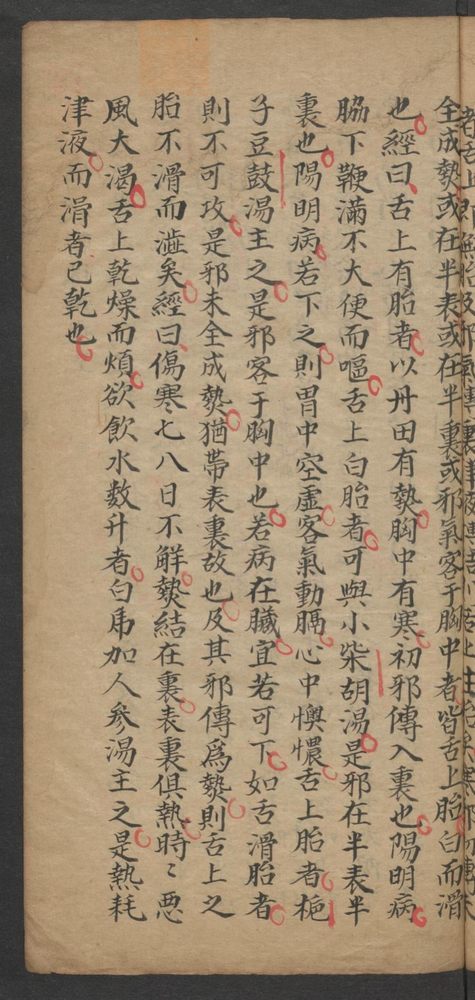 全成熱或在半表或在半裏或邪氣客于胸中者皆舌上胎白而滑
也經曰舌上有胎者以丹田有熱胸中有寒初邪傳入裏也陽明病
脇下鞕滿不大便而嘔舌上白胎者可與小柴胡湯是邪在半表半
裏也陽明病若下之則胃中空虛客氣動膈心中懊憹舌上胎者梔
子豆鼓湯主之是邪客于胸中也若病在臟宜若可下如舌滑胎者
則不可攻是邪未全成熱猶帶表裏故也及其邪傳爲熱則舌上之
胎不滑而澁矣經曰傷寒七八日不解熱結在裏表裏俱熱時〻惡
風大渴舌上乾燥而煩欲飲水数升者白虎加人參湯主之是熱耗
津液而滑者已乾也